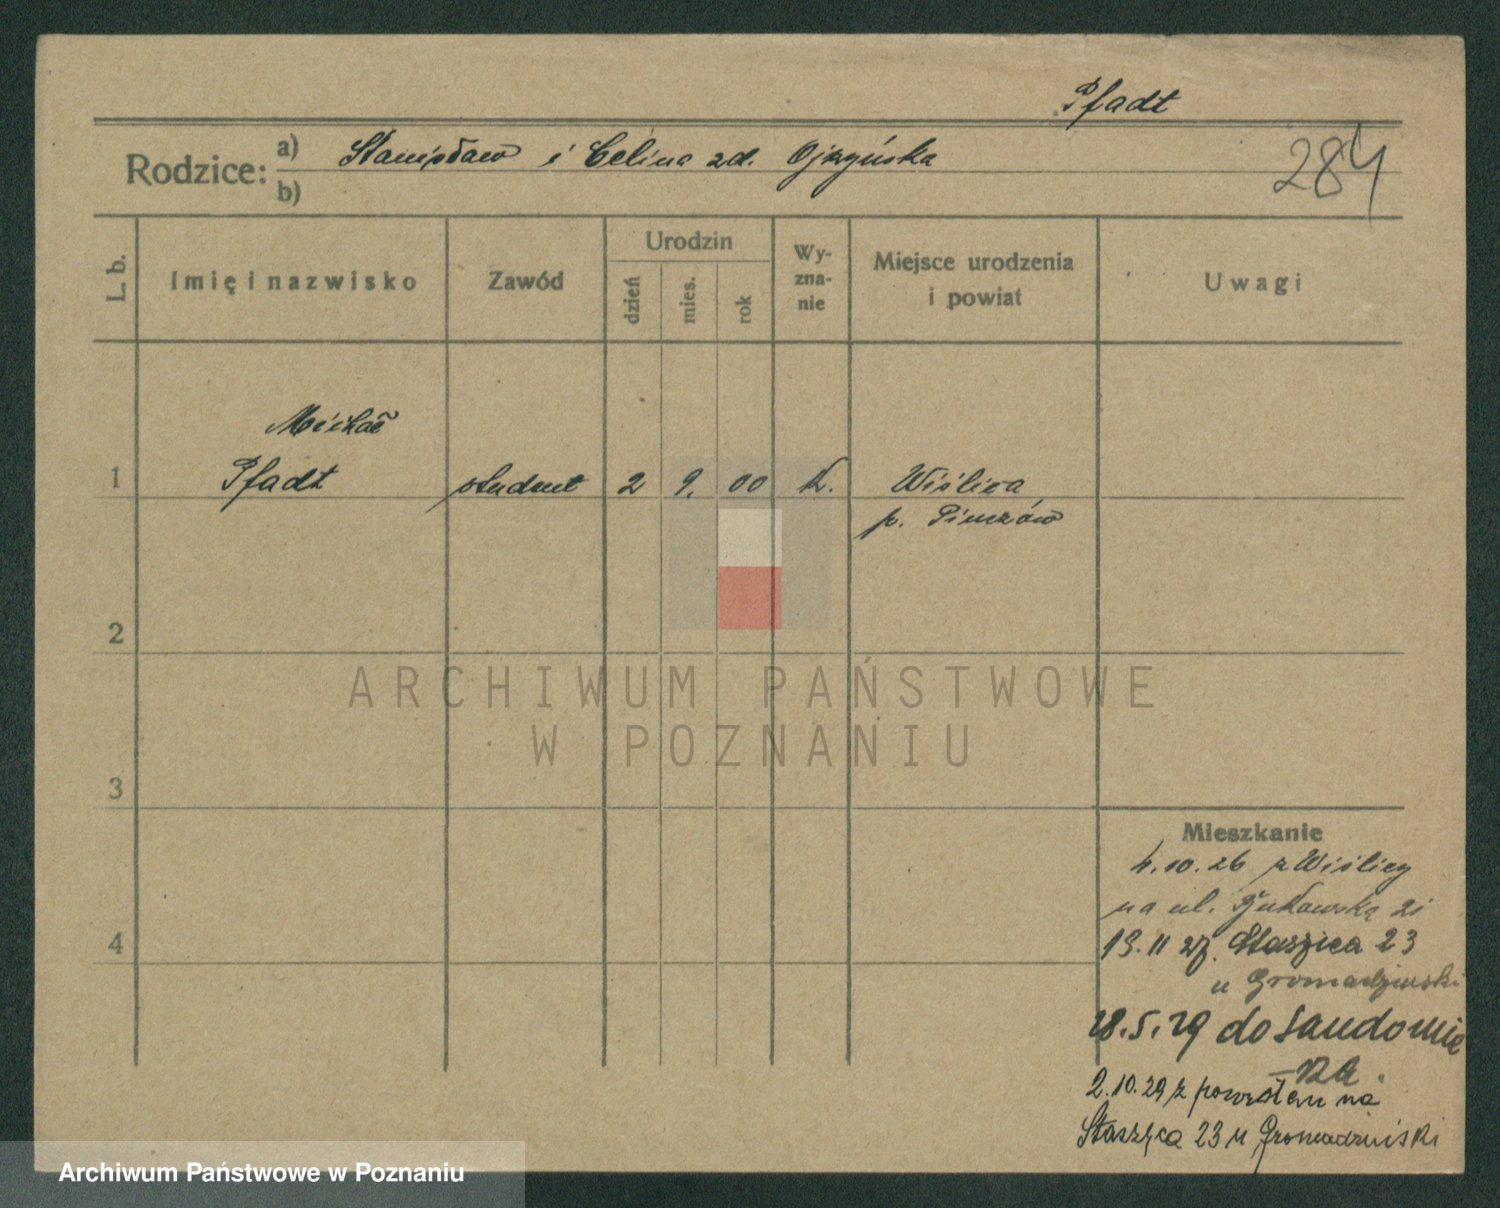 Pfadt
Rodzice: a) Stanisław i Celina zd. Ojrzyńska
b)
284
L. b.
Imię i nazwisko
Zawód
Urodzin
dzień
mies.
rok
Wy-
zna-
nie
Miejsce urodzenia
i powiat
Uwagi
Michał
1 Pfadt student 2 9. 00 k. Wiślica
p. Pinczów
2
ARCHIWUM PAŃSTWOWE
W POZNANIU
3
Mieszkanie
4.10.26 z Wiślicy
na ul. 21
4
19.11 27. Staszica 23
u Gromadzinski
28.5.29 do Sandomie
-rza.
2.10.29 z powrotem na
Staszyca 23 u Gromadzinski
Archiwum Państwowe w Poznaniu